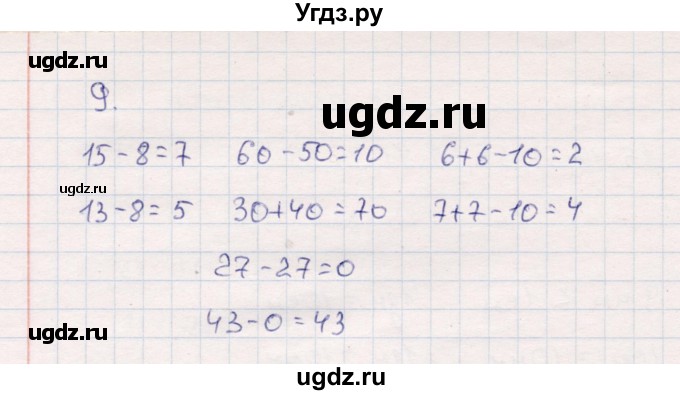 Угдз.ру
ugdz.ru
9.
ugdz.ru
15-8=7 60-50=10 6+6-10=2
ugdz.ru
13-8=5 30+40=70 7+7-10=4
27-27=0
43-0=43
ugdz.ru
ugdz.ru